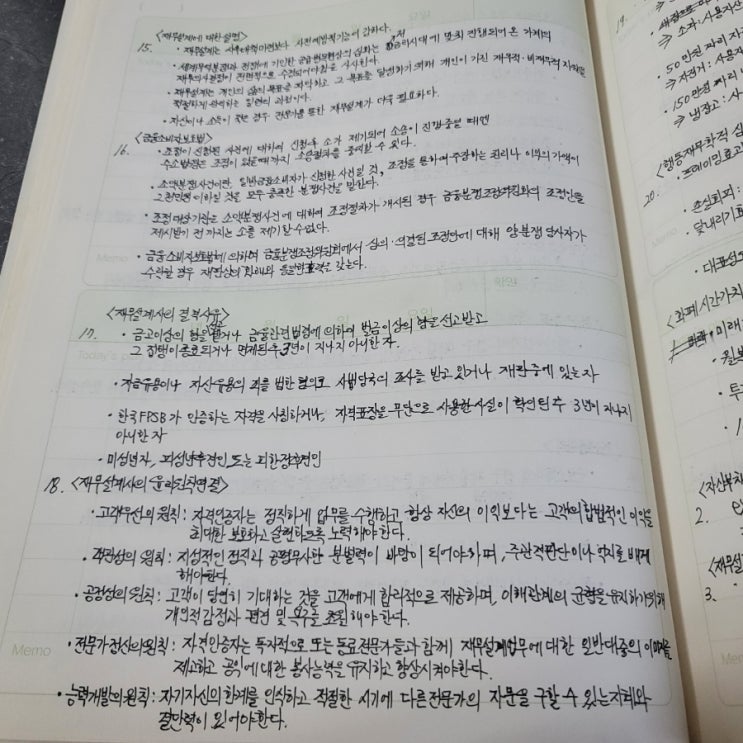 <재무설계에 대한 설명>
15. · 재무설계는 사후대책마련보다 사전예방적기능이 강하다.
· 세계무역분쟁과 전쟁에 기인한 공급 심화는 저금리시대에 맞춰 진행되어 온 가계의
재무의사결정이 전면적으로 수정되어야함을 시사한다.
· 재무설계는 개인의 삶의 목표를 파악하고 그 목표를 달성하기위해 개인이 가진 재무적·비재무적 자원을
적절하게 관리하는 일련의 과정이다.
· 자산이나 소득이 적은 경우 전문가를 통한 재무설계가 더욱 필요하다.
<금융소비자보호법>
16. · 조정이 신청된 사건에 대하여 신청후 소가 제기되어 소송이 진행중일 때엔
수소법원은 조정이 있을때까지 소송절차를 중지할 수 있다.
· 소액분쟁사건이란, 일반금융소비자가 신청한 사건일 것, 조정을 통하여 주장하는 권리나 이익의 가액이
2천만원 이하일 것을 모두 충족한 분쟁사건을 말한다.
· 조정대상기관은 소액분쟁사건에 대하여 조정절차가 개시된 경우 금융분쟁조정위원회의 조정안을
제시받기 전까지는 소를 제기할 수 없다.
· 금융소비자보호법에 의하여 금융분쟁조정위원회에서 심의·의결된 조정안에 대해 양 분쟁 당사자가
수락할 경우 재판상의 화해와 동일한 효력을 갖는다.
<재무설계사의 결격사유>
17. · 금고이상의 형을 선고받거나 금융관련법령에 의하여 벌금이상의 형을 선고받고
그 집행이 종료되거나 면제된 후 3년이 지나지 아니한 자.
· 자금유용이나 자산유용의 죄를 범한 혐의로 사법당국의 조사를 받고 있거나 재판중에 있는 자
· 한국FPSB가 인증하는 자격을 사칭하거나, 자격표장을 무단으로 사용한 사실이 확인된 후 3년이 지나지
아니한 자
· 미성년자, 피성년후견인 또는 피한정후견인
18. <재무설계사의 윤리원칙연결>
· 고객우선의 원칙: 자격인증자는 정직하게 업무를 수행하고 항상 자신의 이익보다는 고객의 합법적인 이익을
최대한 보호하고 실현하도록 노력해야한다.
· 객관성의 원칙: 지성적인 정직과 공평무사한 분별력이 바탕이 되어야하며, 주관적판단이나 억지를 배제
해야한다.
· 공정성의 원칙: 고객이 당연히 기대하는 것을 고객에게 합리적으로 제공하며, 이해관계의 균형을 유지하기위해
개인적감정과 편견 및 욕구를 초월해야한다.
· 전문가정신의원칙: 자격인증자는 독자적으로 또는 동료전문가들과 함께 재무설계업무에 대한 일반대중의 이미지를
제고하고 공익에 대한 봉사능력을 유지하고 향상시켜야한다.
· 능력개발의 원칙: 자기자신의 한계를 인식하고 적절한 시기에 다른전문가의 자문을 구할 수 있는 지혜와
결단력이 있어야한다.
Memo
19.
⇒ 소화: 사용자산
· 50만원 짜리 자
⇒ 자전거: 사용자
· 150만원 짜리
⇒ 냉장고: 사
<행동재무학적 심
20. · 프레이밍효과
· 손실회피:
· 닻내리기효
· 대표성
<화폐 시간가치
미래
2.
3.